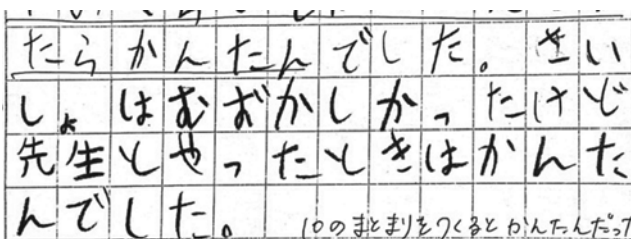 たらかんたんでした。さい
しょはむずかしかったけど
先生とやったときはかんた
んでした。
10のまとまりをつくるとかんたんだった